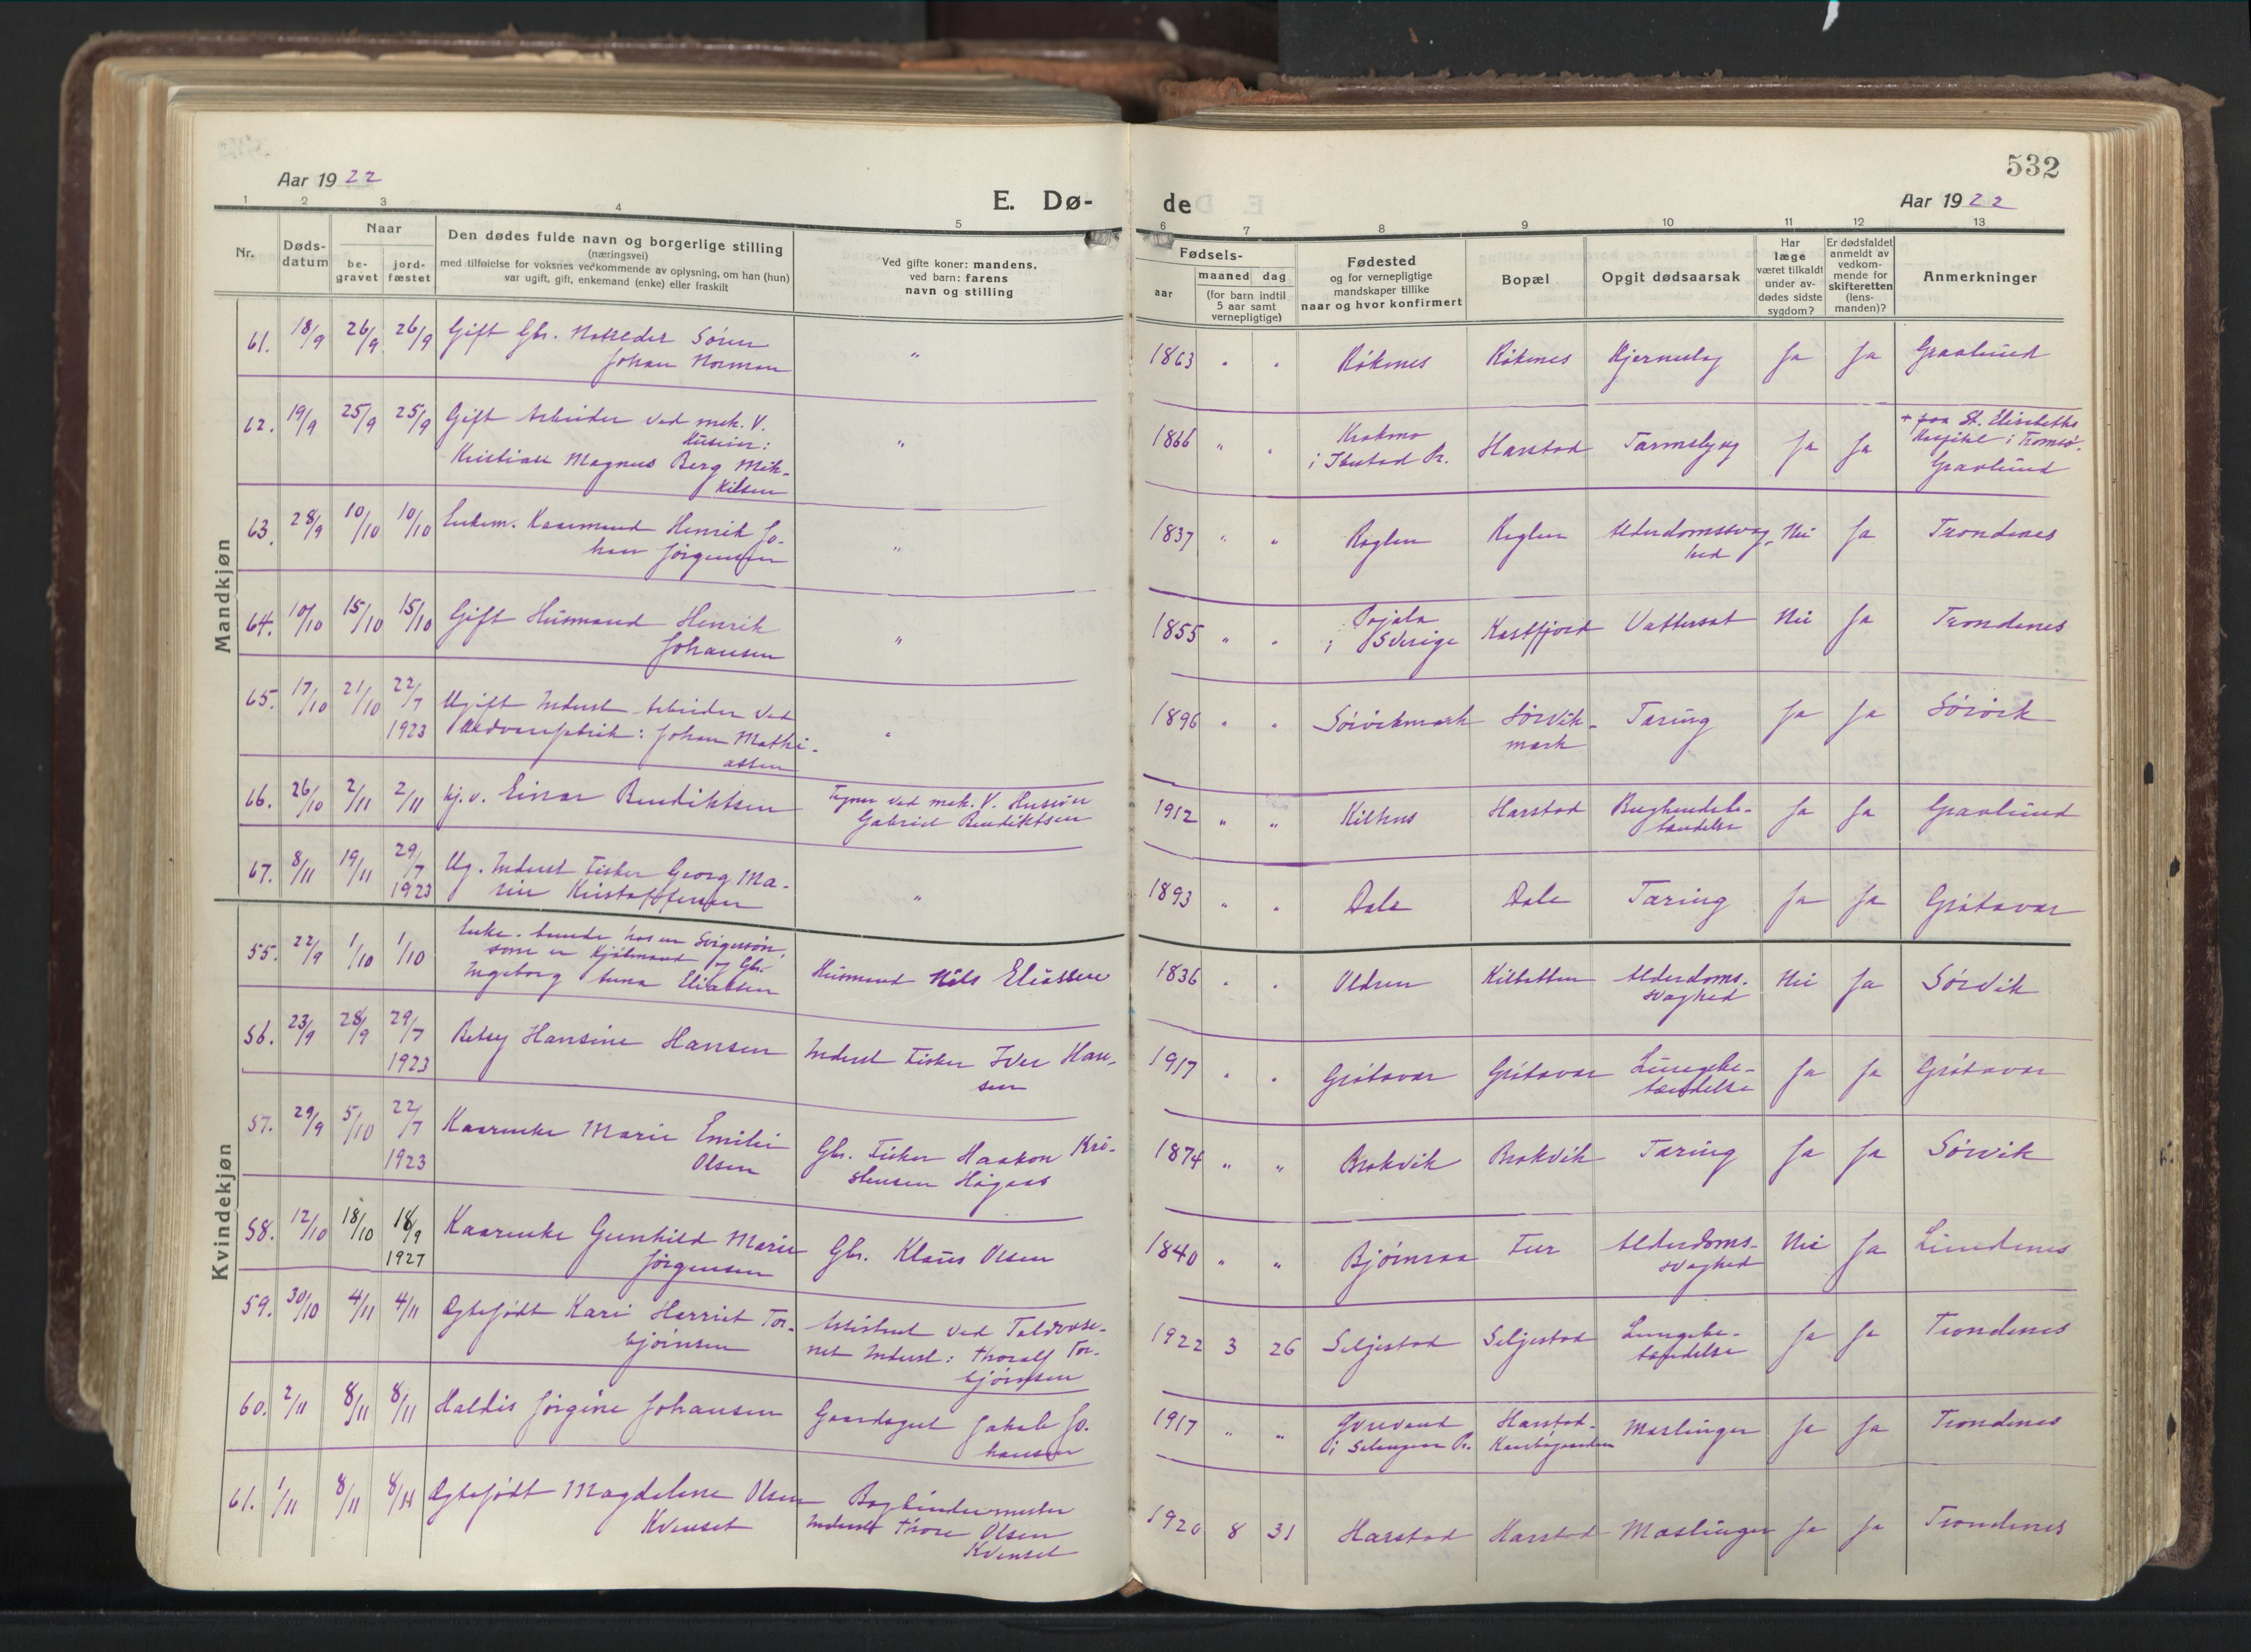 532
Aar 1922
E. Dø-
de
Aar 1922
1 2 3 4 5 6 7 8 9 10 11 12 13
Nr.
Døds-
datum
Naar
be-
gravet
jord-
fæstet
Den dødes fulde navn og borgerlige stilling
(næringsvei)
med tilføielse for voksnes vedkommende av oplysning, om han (hun)
var ugift, gift, enkemand (enke) eller fraskilt
Ved gifte koner: mandens,
ved barn: farens
navn og stilling
Fødsels-
aar
maaned dag
(for barn indtil
5 aar samt
vernepligtige)
Fødested
og for vernepligtige
mandskaper tillike
naar og hvor konfirmert
Bopæl
Opgit dødsaarsak
Har
læge
været tilkaldt
under av-
dødes sidste
sygdom?
Er dødsfaldet
anmeldt av
vedkom-
mende for
skifteretten
(lens-
manden)?
Anmerkninger
Mandkjøn
61. 18/9 26/9 26/9 Gift Gbr. Søren
Johan Norman
" 1863 " " Røkenes Røkenes Hjerneslag Ja Ja Gravlund
62. 19/9 25/9 25/9 Gift Arbeider ved mek. V.
Huseier:
Kristian Magnus Berg Mik-
kilsen
" 1866 " " Krokmo
i Ibestad Pr. Harstad Tarmslyng Ja Ja
+ paa St. Elisabeths
Hospital i Tromsø.
Gravlund
63. 28/9 10/10 10/10 Enkem. Kaarmand Henrik Jo-
han Jørgensen
" 1837 " " Røglen Røglen Alderdomssvag-
hed Nei Ja Trondenes
64. 10/10 15/10 15/10 Gift Husmand Henrik
Johansen
" 1855 " " Pajala
i Sverige Kastfjord Vattersot Nei Ja Trondenes
65. 17/10 21/10 22/7
1923 Ugift Inderst Arbeider ved
Uldvarefabrik: Johan Mathi-
assen
" 1896 " " Sørvikmark Sørvik-
mark Tæring Ja Ja Sørvik
66. 26/10 2/11 2/11 hj.v. Einar Bendiktsen
Tegner ved mek. V. Huseier
Gabriel Bendiktsen
1912 " " Kilhus Harstad Bughindebe-
tændelse Ja Ja Gravlund
67. 8/11 19/11 29/7
1923 Ug. Inderst Fisker Georg Ma-
rin Kristoffersen
" 1893 " " Dale Dale Tæring Ja Ja Grøtavær
Kvindekjøn
55. 22/9 1/10 1/10 Enke.
som er og Gbr.
Ingeborg Anna Eliassen
Husmand Nils Eliassen
1836 " " Oldren Kilbotten Alderdoms-
svaghed Nei Ja Sørvik
56. 23/9 28/9 29/7
1923 Betsy Hansine Hansen
Inderst Fisker Iver Han-
sen
1917 " " Grøtavær Grøtavær Lungebe-
tændelse Ja Ja Grøtavær
57. 29/9 5/10 22/7
1923 Kaarenke Marie Emilie
Olsen
Gbr. Fisker Haakon Kri-
stensen Høgaas
1874 " " Brokvik Brokvik Tæring Ja Ja Sørvik
58. 12/10 18/10 18/9
1927 Kaarenke Gunhild Marie
Jørgensen
Gbr. Klaus Olsen
1840 " " Bjørnraa Fur Alderdoms-
svaghed Nei Ja Lundenes
59. 30/10 4/11 4/11 Ægtefødt Kari Harriet Tor-
bjørnsen
Assistent ved Toldvæse-
net Inderst: Thoralf Tor-
bjørnsen
1922 3 26 Seljestad Seljestad Lungebe-
tændelse Ja Ja Trondenes
60. 2/11 8/11 8/11 Haldis Jørgine Johansen
Gaardsgut Jakob Jo-
hansen
1917 " "
i Salangen Pr. Harstad-
Meslinger Ja Ja Trondenes
61. 1/11 8/11 8/11 Ægtefødt Magdelene Olsen
Kvenset
Bogbindermester
Inderst Thore Olsen
Kvenset
1920 8 31 Harstad Harstad Meslinger Ja Ja Trondenes